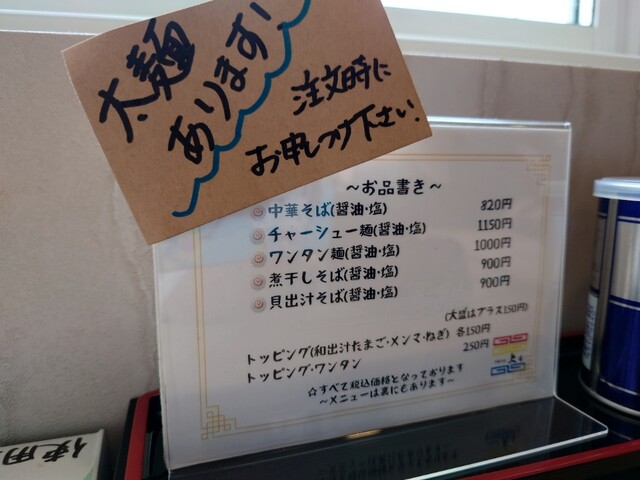 太麺
あります
注文時に
お申しつけ下さい.
～お品書き～
中華そば(醤油・塩) 820円
チャーシュー麺(醤油・塩) 1150円
ワンタン麺(醤油・塩) 1000円
煮干しそば(醤油・塩) 900円
貝出汁そば(醤油・塩) 900円
(大盛はプラス150円)
トッピング(和出汁たまご・メンマ・ねぎ) 各150円
トッピング・ワンタン 250円
☆すべて税込価格となっております
～メニューは裏にもあります～
使用